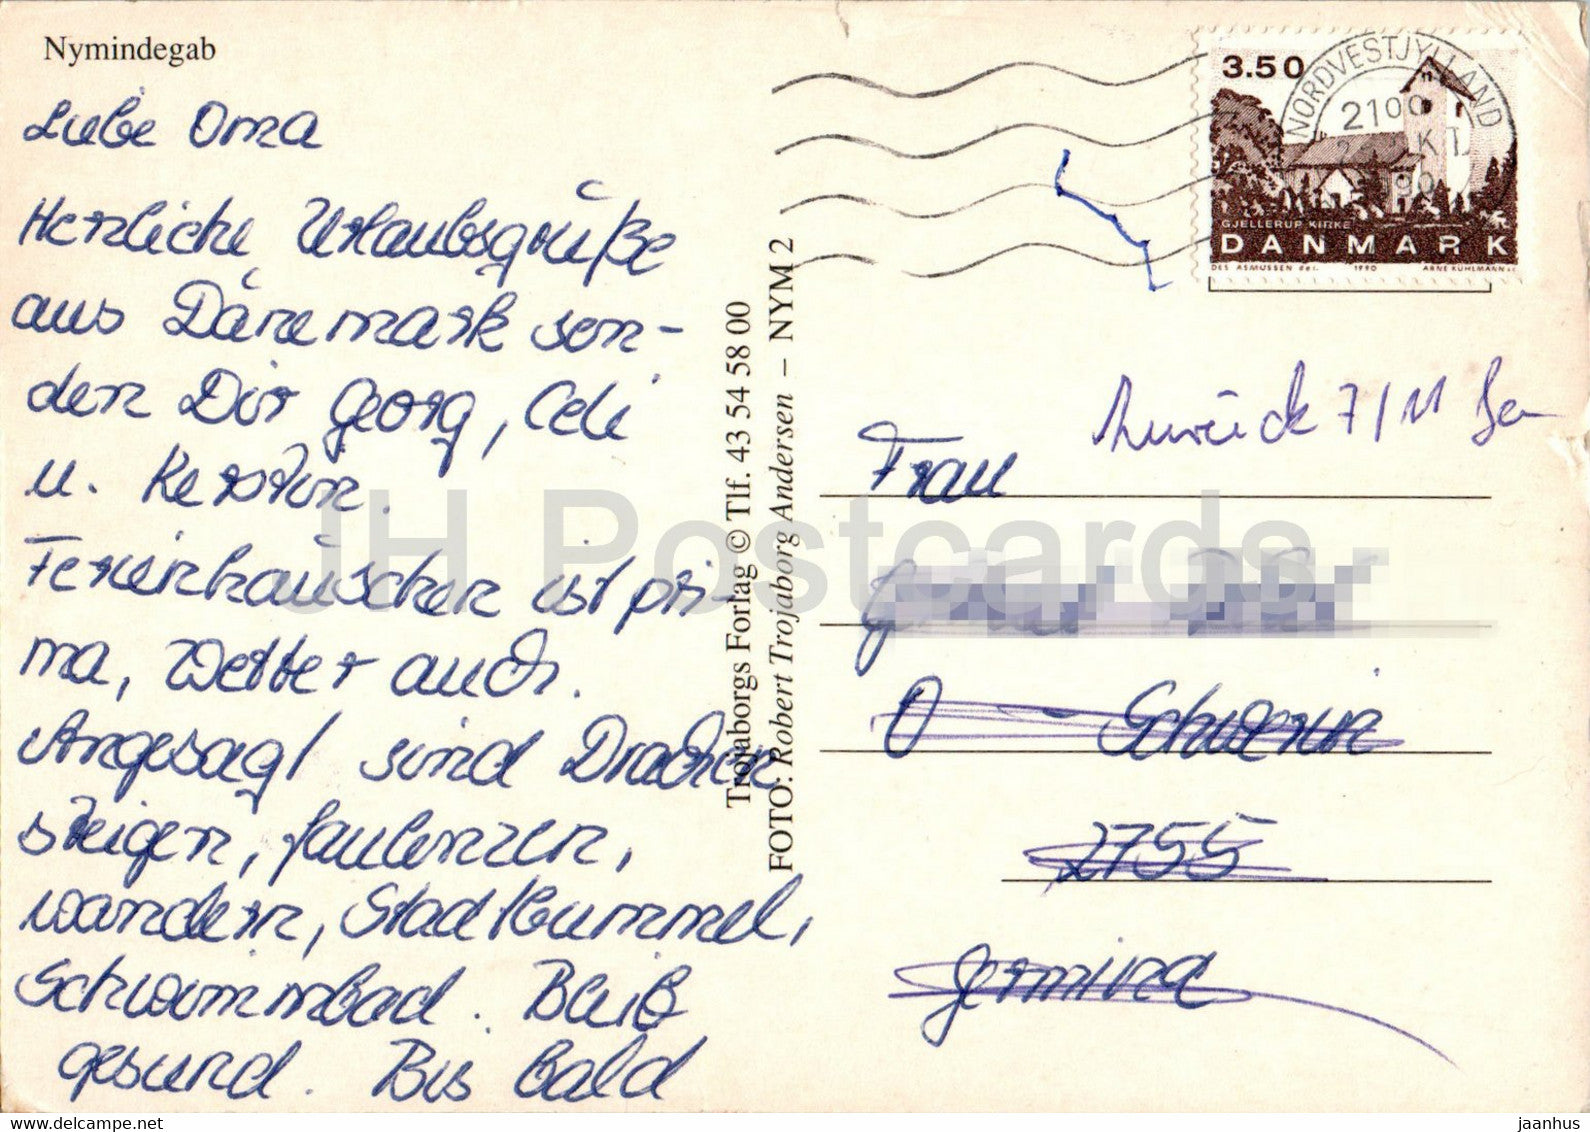 Nymindegab
Liebe Oma
Herzliche Urlaubsgrüße
aus Dänemark sen-
den Dir Georg, Celi
u. Kerstin.
Ferienhäuschen ist pri-
ma, Wetter auch.
Angesagt sind Drachen
steigen, faulenzen,
wandern, Stadtbummel,
Schwimmbad. Bleib
gesund. Bis bald
Trojaborgs Forlag © Tlf. 43 54 58 00
FOTO: Robert Trojaborg Andersen – NYM 2
3.50
GJELLERUP KIRKE
DANMARK
DES ASMUSSEN del. 1990 ARNE KÜHLMANN sc
NORDVESTJYLLAND
Zurück 7/11
Frau
O - Schwerin
2755
Germina
JH Postcards
www.delcampe.net
jaanhus